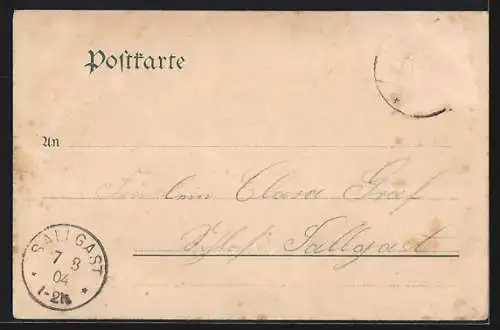 Postkarte
An
Fräulein Clara Graf
Schloß Sallgast
SALLGAST
7 8
04
1-2N